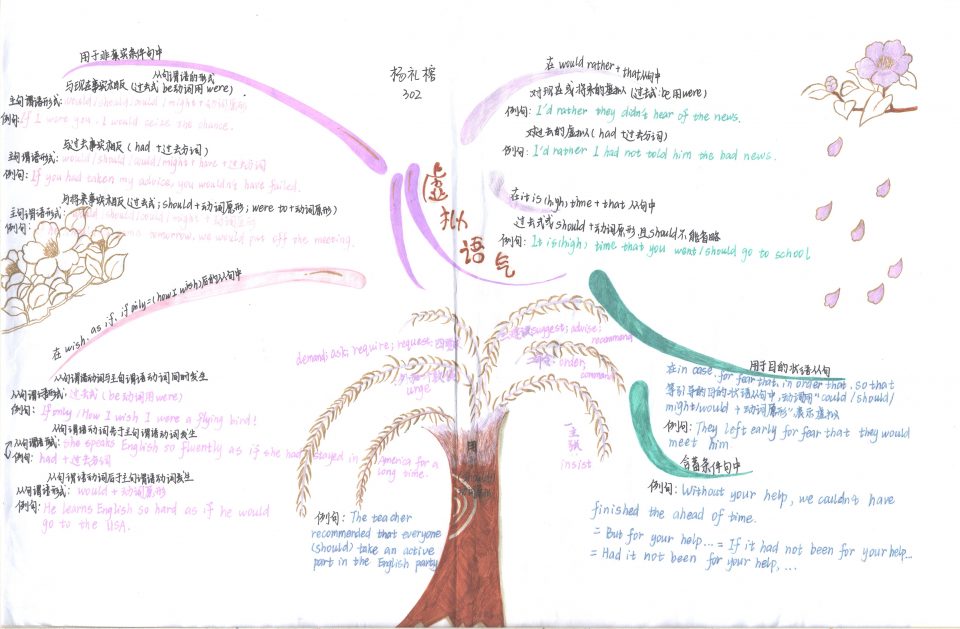 用于非真实条件句中
从句谓语的形式
与现在事实相反（过去式 be动词用were）
主句谓语形式：would/should/could/might+动词原形
例句：If I were you, I would seize the chance.
与过去事实相反（had +过去分词）
主句谓语形式：would/should/could/might + have +过去分词
例句：If you had taken my advice, you wouldn't have failed.
与将来事实相反（过去式；should+动词原形；were to+动词原形）
主句谓语形式：would/should/could/might + 动词原形
例句：
tomorrow, we would put off the meeting.
在wish，as if，if only=(how I wish)后的从句中
从句谓语动词与主句谓语动词同时发生
从句谓语形式：过去式（be动词用were）
例句：If only/How I wish I were a flying bird!
从句谓语动词先于主句谓语动词发生
从句谓语形式：She speaks English so fluently as if she had stayed in
America for a
long time.
例句：had +过去分词
从句谓语动词后于主句谓语动词发生
从句谓语形式：would +动词原形
例句：He learns English so hard as if he would
go to the USA.
杨礼榕
302
虚拟语气
在would rather + that从句中
对现在或将来的虚拟（过去式 be用were）
例句：I'd rather they didn't hear of the news.
对过去的虚拟（had +过去分词）
例句：I'd rather I had not told him the bad news.
在it is (high) time + that 从句中
过去式或should +动词原形 且should不能省略
例句：It is (high) time that you went/should go to school.
用于目的状语从句
在in case, for fear that, in order that, so that
等引导的目的状语从句中，动词用"could /should/
might/would +动词原形"表示虚拟
例句：They left early for fear that they would
meet him
含蓄条件句中
例句：Without your help, we couldn't have
finished the ahead of time.
= But for your help... = If it had not been for your help...
= Had it not been for your help, ...
demand; ask; require; request; 四要求
urge
三建议suggest; advise;
recommend
二命令 order;
command
一主张
insist
例句：The teacher
recommended that everyone
(should) take an active
part in the English party